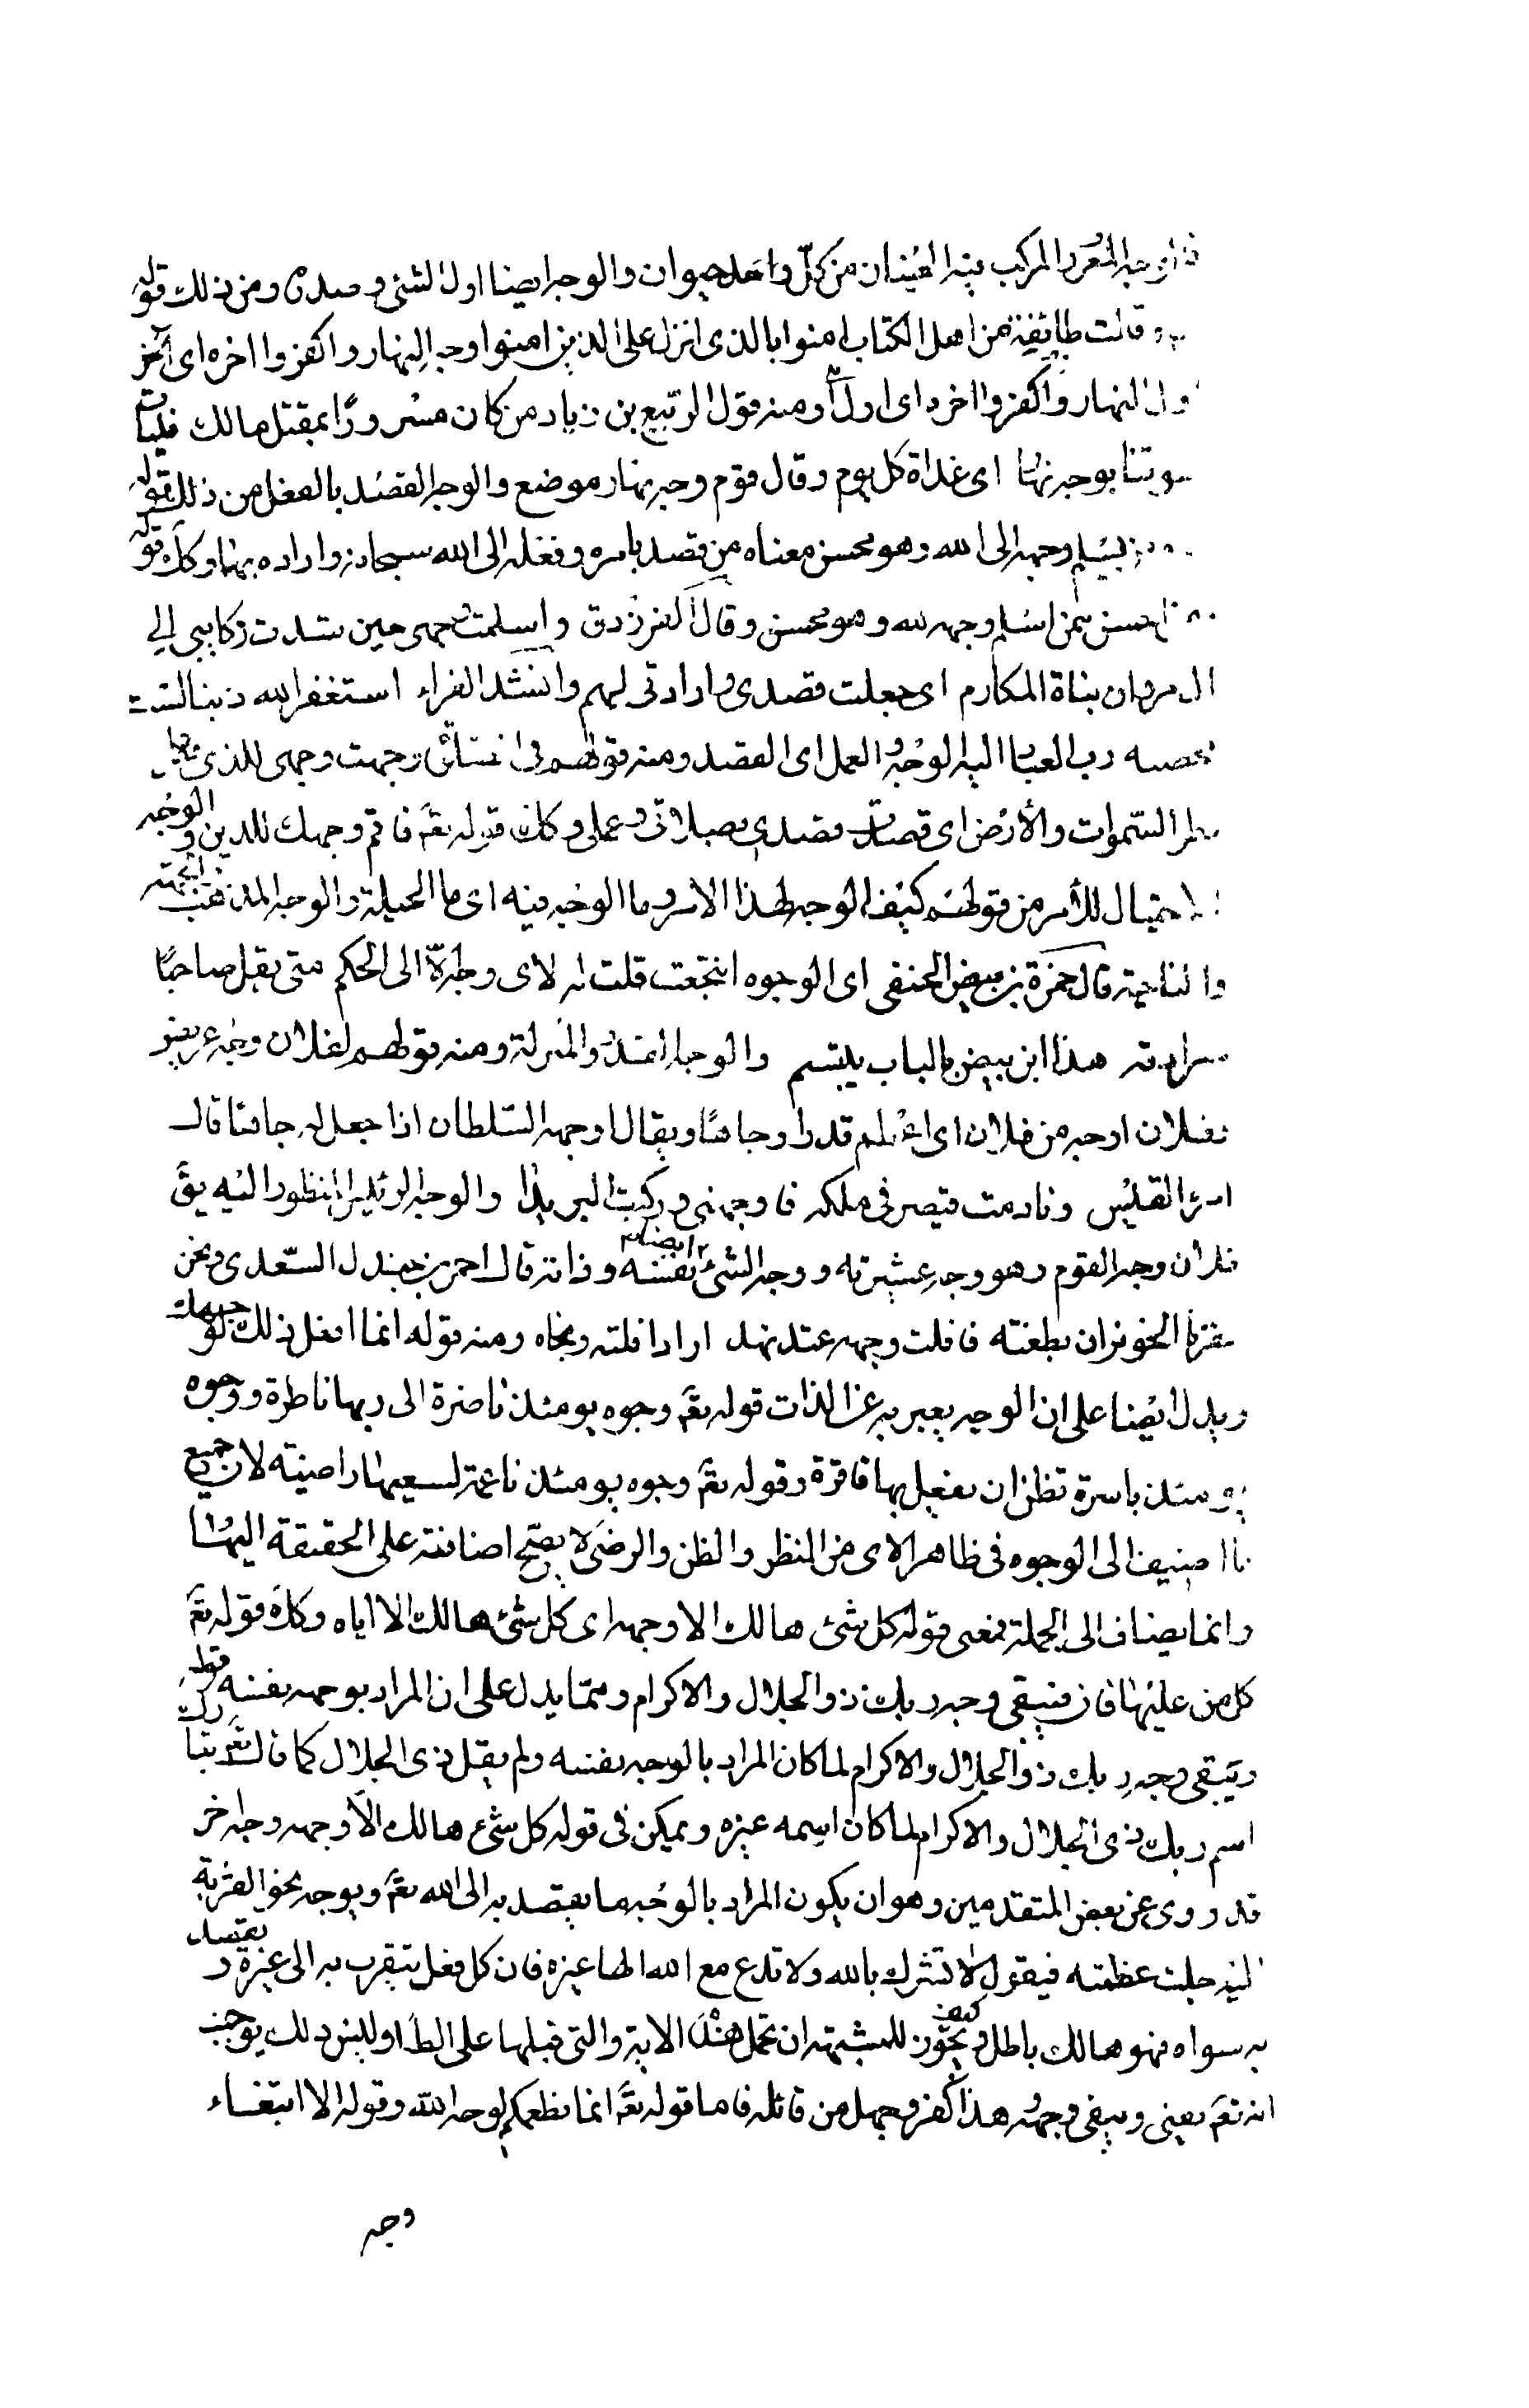 المركب فيه العينان من كل واحد حيوان والوجه ايضا اول الشئ وصدره ومن ذلك قوله
وقالت طايفة من اهل الكتاب امنوا بالذى انزل على الذين امنوا وجه النهار واكفروا اخره اى آخر
اول النهار واكفروا اخره اى اول ومنه قول الربيع بن زياد من كان مسرورًا بمقتل مالك فليات
سوتنا بوجه نهار اى غداة كل يوم وقال قوم وجه نهار موضع والوجه القصد بالفعل من ذلك قوله
يسلم وجهه الى الله وهو محسن معناه من قصد بامره وفعله الى الله سبحانه واراده بهما وكك قوله
احسن ممن اسلم وجهه لله وهو محسن وقال الفرزدق واسلمت وجهى حين شدت ركايبى الى
ال مروان بناة المكارم اى جعلت قصدى وارادتى لهم وانشد الفراء استغفر الله ذنبا لست
محصيه رب العباد اليه الوجه والعمل اى القصد ومنه قولهم فى وجهت وجهى للذى
فطر السموات والأرض اى قصدت قصدى بصلاتى وعملى وكك قوله تعَ فاقم وجهك للدين والوجه
الاحتيال للأمر من قولهم كيف الوجه لهذا الامر وما الوجه فيه اى ما الحيلة والوجه المذهب والجهة
والناحية قال حمزة بن بيض الحنفى اى الوجوه انتجعت قلت له لاى وجه الى الحكم متى يقل صاحبًا
سرادقه هذا ابن بيض بالباب يبتسم والوجه القدر والمنزلة ومنه قولهم لفلان وجه عريض
وفلان اوجه من فلان اى اعظم قدرا وجاهًا ويقال اوجهه السلطان اذا جعل له جاها قال
امرؤ القيس ونادمت قيصر فى ملكه فاوجهنى وركبت البريدا والوجه الرئيس المنظور اليه يقَ
فلان وجه القوم وهو وجه عشيرته ووجه الشئ ايضا نفسه وذاته قال احمر بن جندل السعدى ونحن
حفزنا الحوفزان بطعنة فافلت وجهه عتد نهد اراد افلته ونجاه ومنه قوله انما افعل ذلك لوجهك
ويدل ايضا على ان الوجه يعبر به عن الذات قوله تعَ وجوه يومئذ ناضرة الى ربها ناظرة ووجوه
يومئذ باسرة تظن ان يفعل بها فاقرة وقوله تعَ وجوه يومئذ ناعمة لسعيها راضية لان جميع
ما اضيف الى الوجوه فى ظاهر الاى من النظر والظن والرضى لا يصح اضافته على الحقيقة اليها
وانما يضاف الى الجملة فمعنى قوله كل شئ هالك الا وجهه اى كل شئ هالك الا اياه وكك قوله تعَ
كل من عليها فان ويبقى وجه ربك ذو الجلال والاكرام ومما يدل على ان المراد بوجهه نفسه قوله
ويبقى وجه ربك ذو الجلال والاكرام لما كان المراد بالوجه نفسه ولم يقل ذى الجلال كما قال تعَ تبارك
اسم ربك ذى الجلال والاكرام لما كان اسمه غيره ويمكن فى قوله كل شئ هالك الا وجهه وجه اخر
قد روى عن بعض المتقدمين وهو ان يكون المراد بالوجه ما يقصد به الى الله تعَ ويوجه نحو القربة
اليه جلت عظمته فيقول لا تشرك بالله ولا تدع مع الله الها غيره فان كل فعل يتقرب به الى غيره ويقصد
به سواه فهو هالك باطل وكيف يجوز للمشبهة ان تحمل هذه الاية والتى قبلها على الظَ اوليس ذلك يوجب
انه تعَ يفنى ويبقى وجهه وهذا كفر وجهل من قائله فاما قوله تعَ انما نطعمكم لوجه الله وقوله الا ابتغاء
وجه